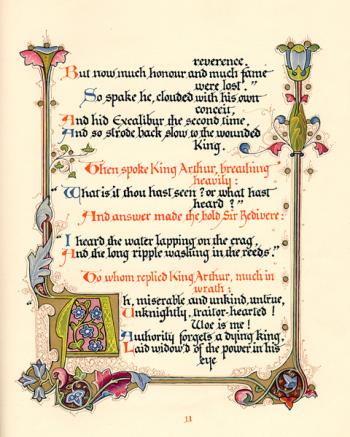 reverence.
But now much honour and much fame
were lost."
So spake he, clouded with his own
conceit,
And hid Excalibur the second time,
And so strode back slow to the wounded
King.
Then spoke King Arthur, breathing
heavily:
"What is it thou hast seen? or what hast
heard?"
And answer made the bold Sir Bedivere:
"I heard the water lapping on the crag,
And the long ripple washing in the reeds."
To whom replied King Arthur, much in
wrath:
"Ah, miserable and unkind, untrue,
Unknightly, traitor-hearted!
Woe is me!
Authority forgets a dying king,
Laid widow'd of the power in his
eye
13